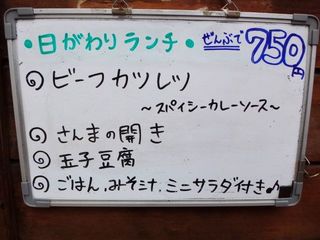 ・日がわりランチ・ ぜんぶで 750円
◎ ビーフカツレツ
～スパイシーカレーソース～
◎ さんまの開き
◎ 玉子豆腐
◎ ごはん.みそ汁.ミニサラダ付き♪